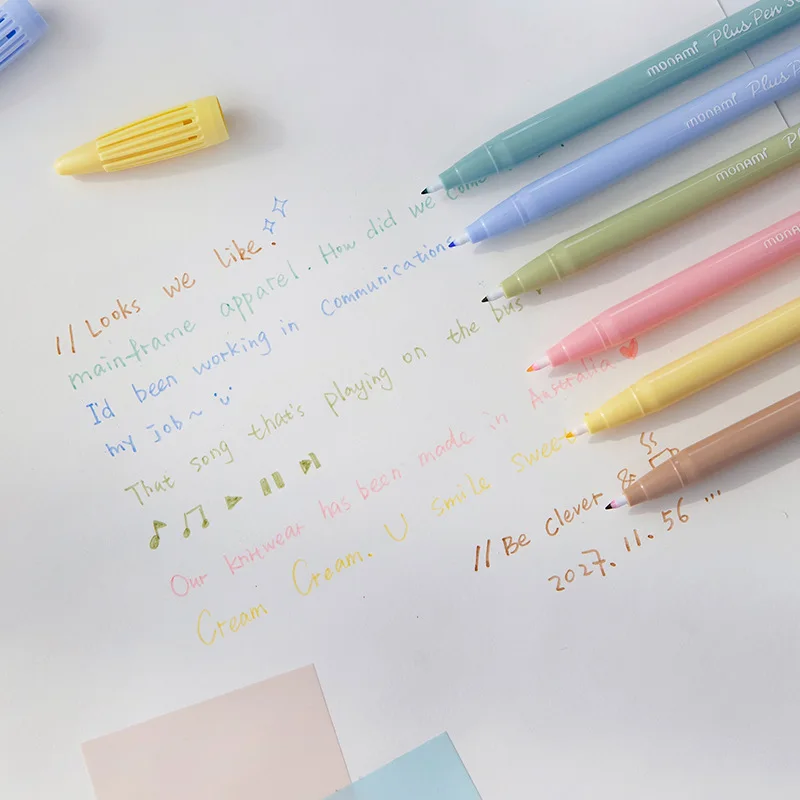 monami Plus Pen
monami Plus P
monami Pl
monami
// Looks we like.
mainframe apparel. How did we come
I'd been working in Communications
my job~
That song that's playing on the bus
Our knitwear has been made in Australia
Cream Cream. U smile sweet
// Be clever &
2027. 11. 56 ...